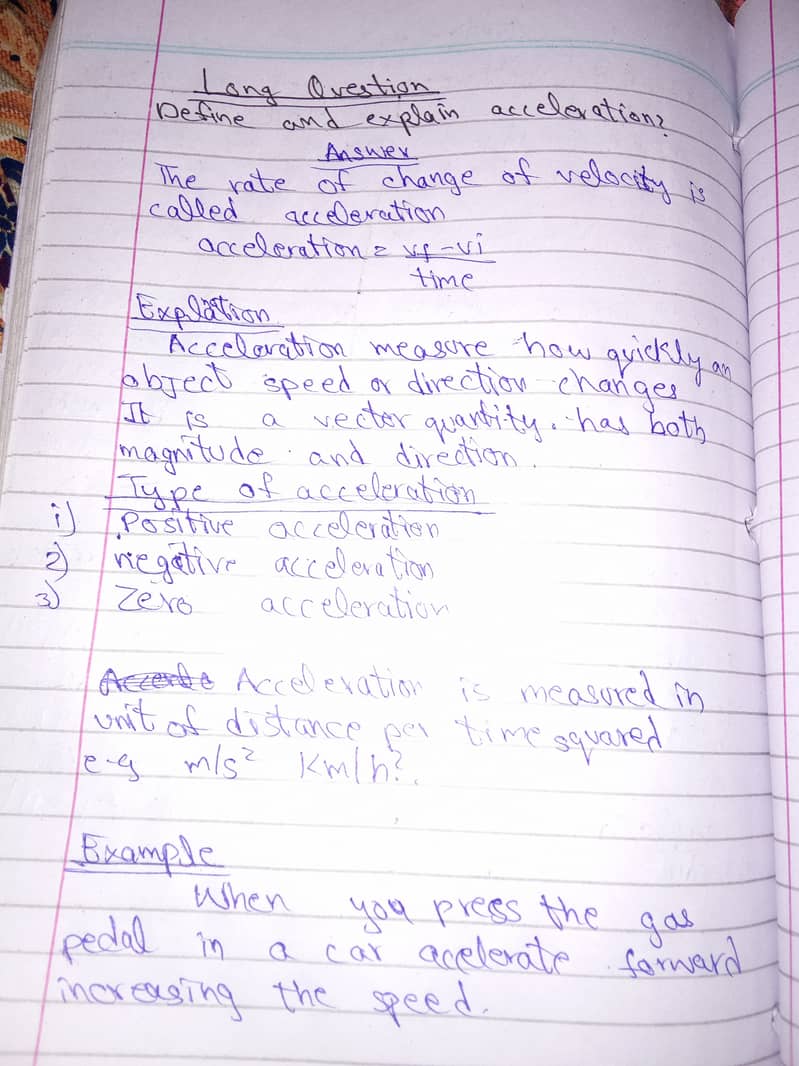 Long Question
Define and explain acceleration?
Answer
The rate of change of velocity is
called acceleration
acceleration = vf - vi
time
Explation
Acceleration measure how quickly an
object speed or direction changes
It is a vector quantity. has both
magnitude and direction.
Type of acceleration
i) Positive acceleration
2) negative acceleration
3) Zero acceleration
Accerle Acceleration is measured in
unit of distance per time squared
e-g m/s² Km/h².
Example
When you press the gas
pedal in a car accelerate forward
increasing the speed.